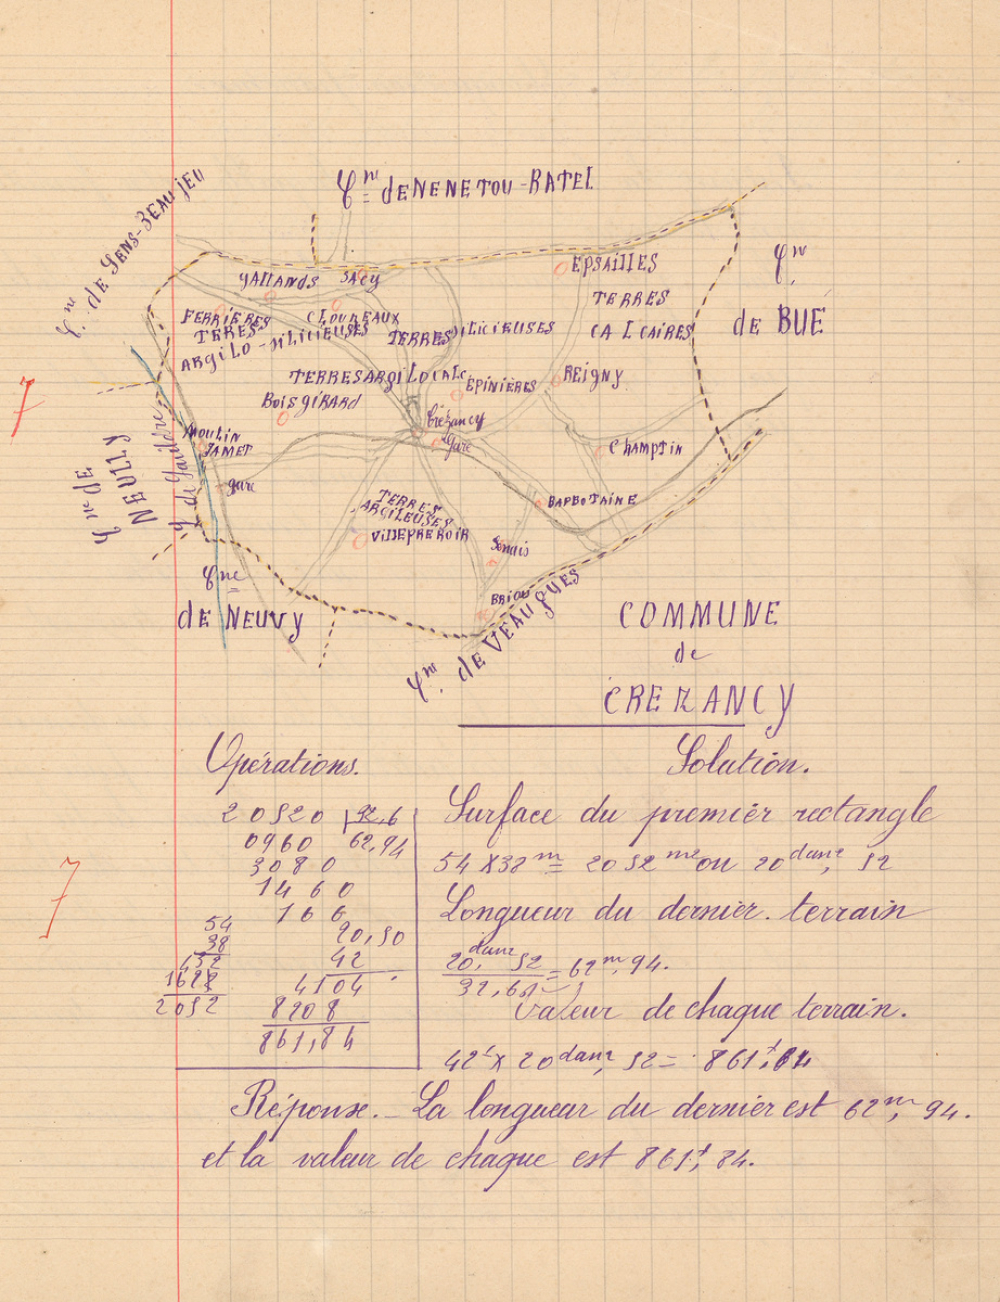 Cne de MENETOU-RATEL
Cne de SENS-BEAUJEU
Cne
de BUÉ
GALLANDS
SACY
EPSAILLES
TERRES
CALCAIRES
FERRIERES
TERES
ARGILO-SILICIEUSES
CLOUREAUX
TERRES SILICIEUSES
TERRES ARGILOCALC
ÉPINIÈRES
REIGNY
BOISGIRARD
Crézancy
gare
CHAMPTIN
MOULIN
JAMET
gare
Cne de
NEUILLY
BARBOTAINE
TERRES
ARGILEUSES
VILLEPREROIR
BRIOU
Cne
de NEUVY
Cne de VEAUGUES
COMMUNE
de
CREZANCY
7
Opérations.
20520 | 32,6
0960 62,94
3080
1460
166
54
38
432
162
2052
20,52
42
4104
8208
861,84
Solution.
Surface du premier rectangle
54 X 38 m = 2052 m2 ou 20 dam2, 52
Longueur du dernier. terrain
20, dam2 52 = 62 m, 94.
32,6
Valeur de chaque terrain.
42 f X 20 dam2, 52 = 861 f, 84
7
Réponse. _ La longueur du dernier est 62 m, 94.
et la valeur de chaque est 861 f, 84.